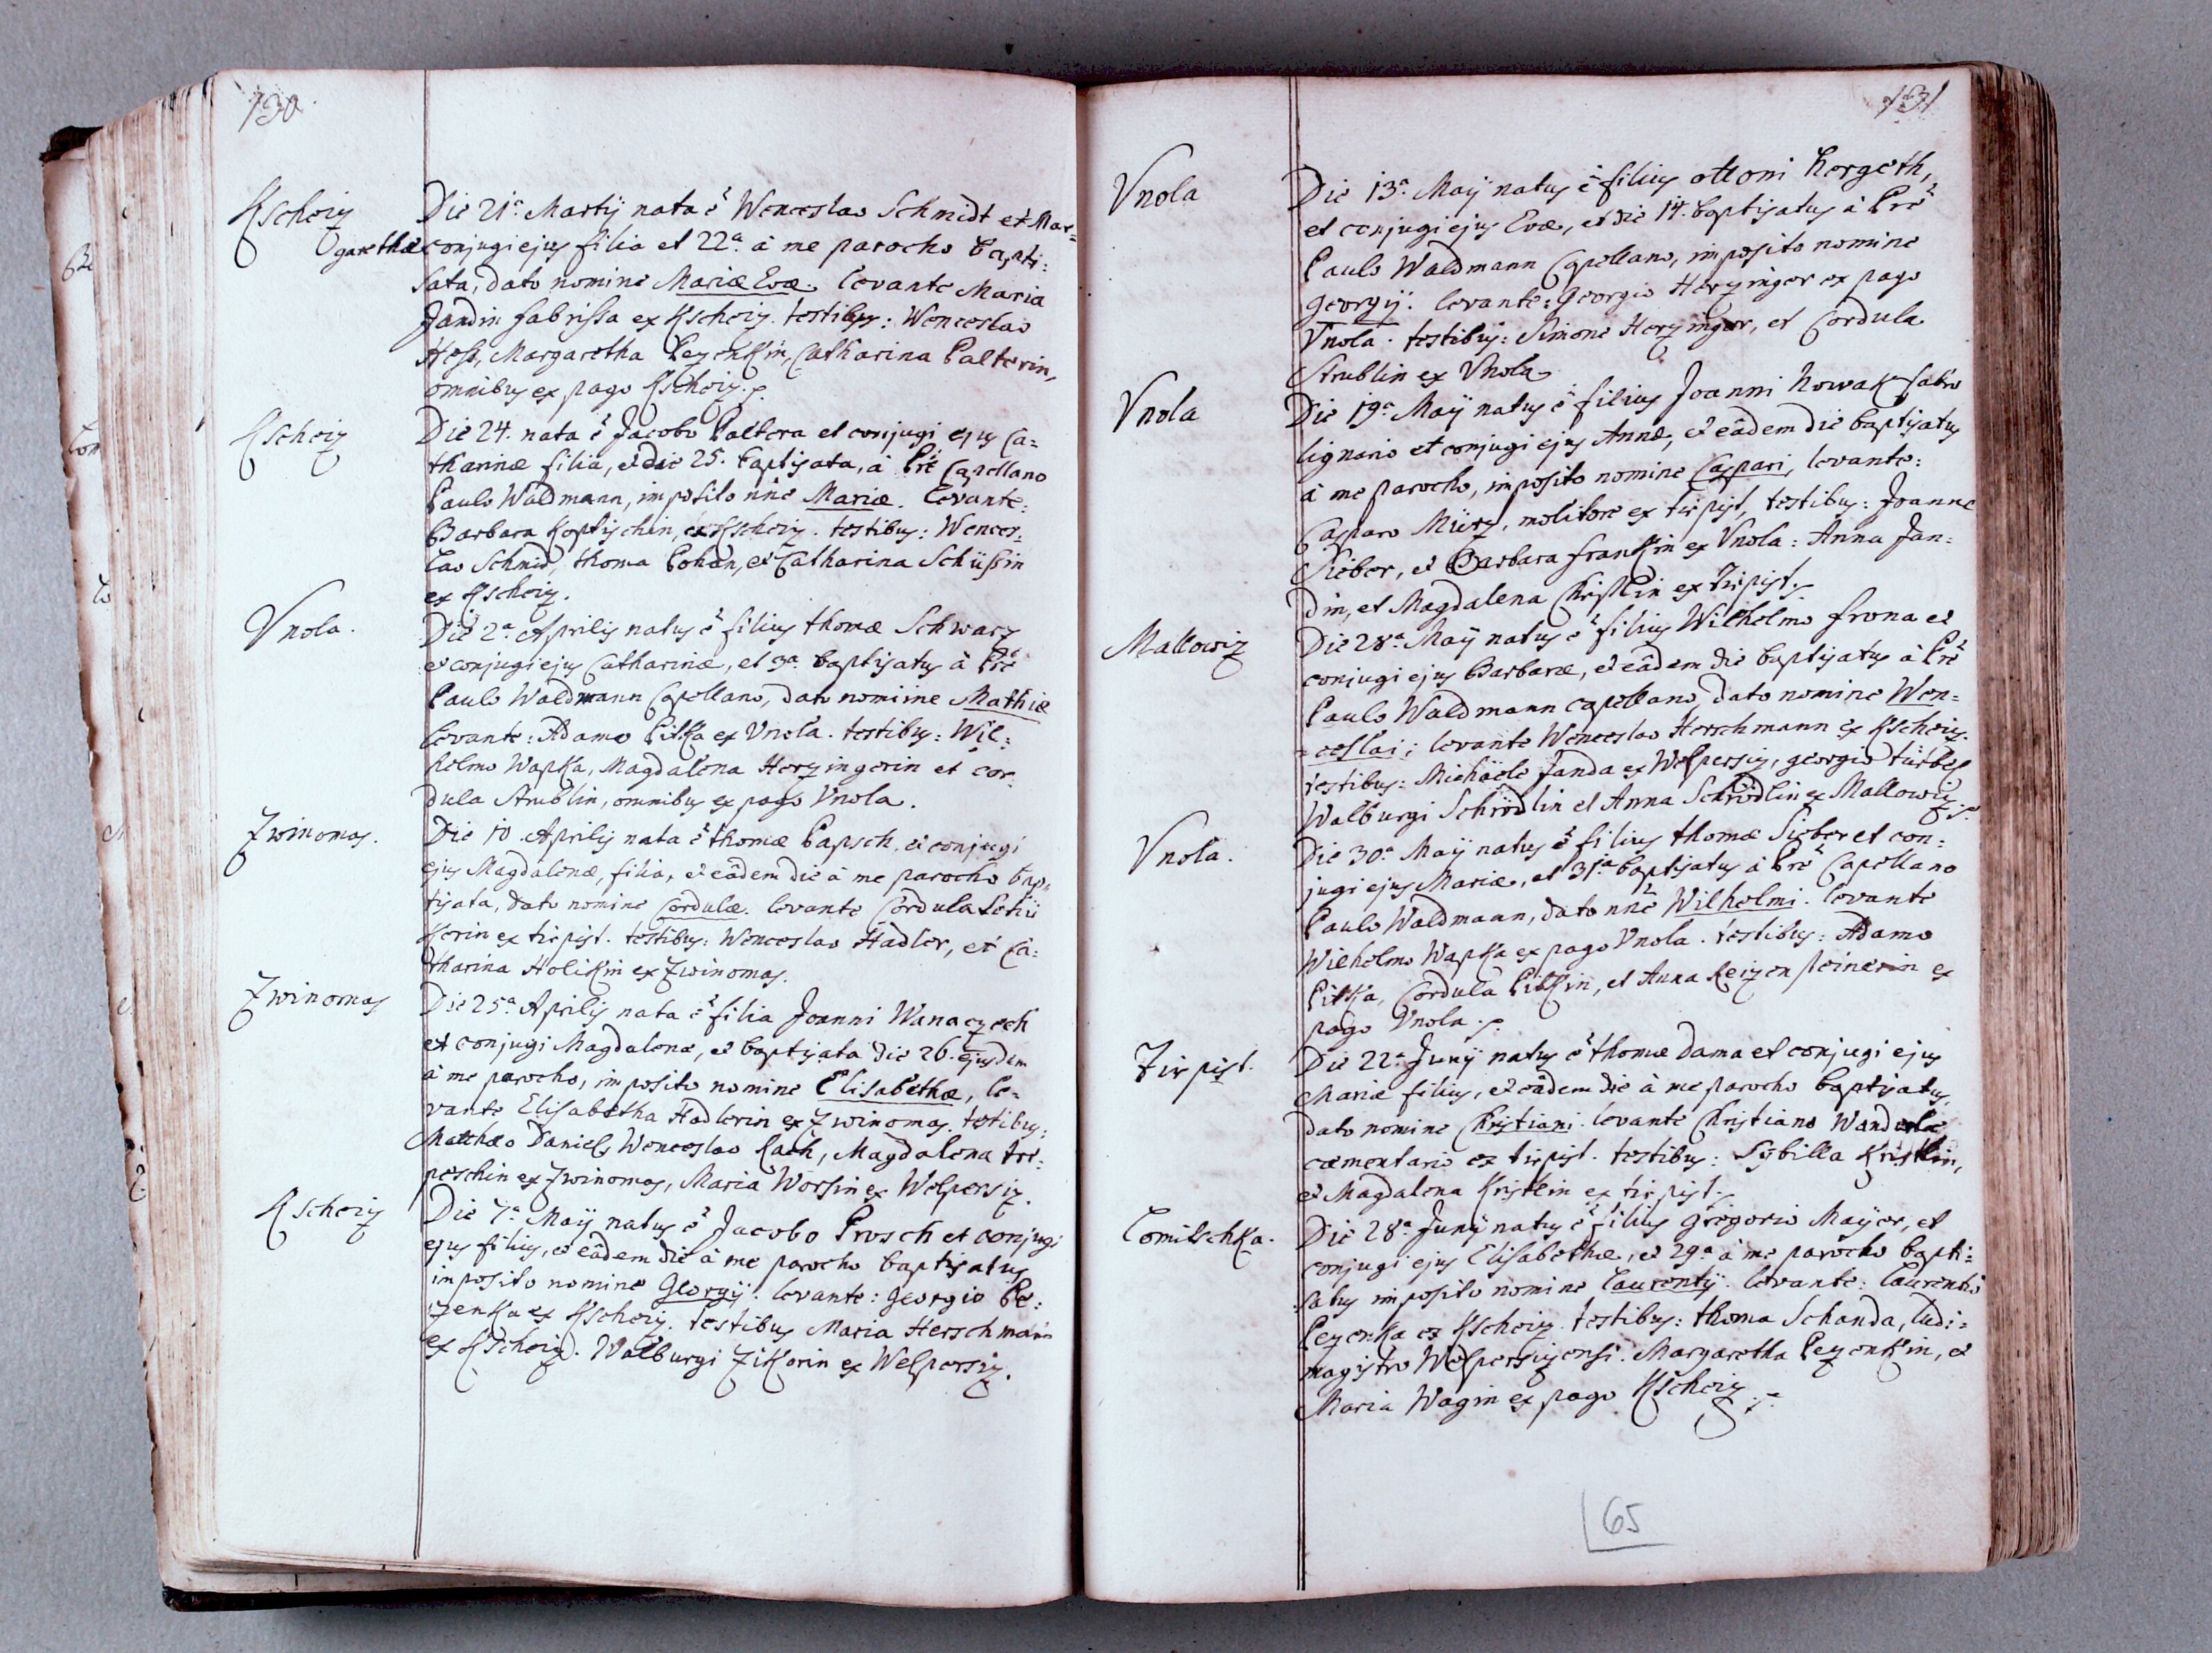 130.
Kscheiz
Die 21ª Martij nata ẽ Wenceslao Schmidt et Mar=
garethæ conjugi ejus filia et 22ª à me parocho bapti:
sata, dato nomine Mariæ Evæ. levante Maria
Jandin fabrissa ex Kscheiz. testibus: Wenceslao
Hess, Margaretha Pezenkin, Catharina Palterin,
omnibus ex pago Kscheiz.
Kscheiz
Die 24. nata ẽ Jacobo Paltera et conjugi ejus Ca=
tharinæ filia, et die 25. baptisata, à Pre Capellano
Paulo Waldmann, imposito nñe Mariæ. Levante:
Barbara Koptischin, ex Kscheiz. testibus: Wences:
lao Schmid, Thoma Pohan, et Catharina Schüssin
ex Kscheiz.
Vnola.
Die 2ª Aprilis natus ẽ filius Thomæ Schwarz
et conjugi ejus Catharinæ, et 3ª baptisatus à Pre
Paulo Waldmann Capellano, dato nomine Mathiæ
levante: Adamo Pitka ex Vnola. testibus: Wil:
helmo Wapka, Magdalena Herzingerin et Cor:
dula Strublin, omnibus ex pago Vnola.
Zwinomas.
Die 10. Aprilis nata ẽ Thomæ Papsch, et conjugi
ejus Magdalenæ, filia, et eâdem die à me parocho bap=
tisata, dato nomine Cordulæ. levante Cordula Schü
kerin ex Tirpist. testibus: Wenceslao Hadler, et Ca:
tharina Holikin ex Zwinomas.
Zwinomas
Die 25ª Aprilis nata ẽ filia Joanni Wanaczech
et conjugi Magdalenæ, et baptisata die 26. ejusdem
à me parocho, imposito nomine Elisabethæ, le=
vante Elisabetha Hadlerin ex Zwinomas. testibus:
Matthæo Daniel, Wenceslao Kach, Magdalena Tre:
peschin ex Zwinomas, Maria Worsin ex Welpersiz.
Kscheiz
Die 7ª Maij natus ẽ Jacobo Prosch et conjugi
ejus filius, et eâdem die à me parocho baptisatus
imposito nomine Georgij. levante: Georgio Pe:
zenka ex Kscheiz. testibus Maria Herschmañ
ex Kscheiz. Walburgi Zikorin ex Welpersiz.
131
Vnola
Die 13ª Maij natus ẽ filius Ottoni Hergeth,
et conjugi ejus Evæ, et die 14. baptisatus à Pre
Paulo Waldmann Capellano, imposito nomine
Georgij. levante: Georgio Herzinger ex pago
Vnola. testibus: Simone Herzinger, et Cordula
Strublin ex Vnola.
Vnola
Die 19ª Maij natus ẽ filius Joanni Nowak fabro
lignario et conjugi ejus Annæ, et eâdem die baptisatus
à me parocho, imposito nomine Caspari, levante:
Casparo Mürz, molitore ex Tirpist, testibus: Joanne
Sieber, et Barbara Frankin ex Vnola: Anna Jan=
din, et Magdalena Christlin ex Tirpist.
Mallowiz
Die 28ª Maij natus ẽ filius Wilhelmo Frona et
conjugi ejus Barbaræ, et eâdem die baptisatus à Pre
Paulo Waldmann capellano, dato nomine Wen=
=ceslai; levante Wenceslao Herschmann ex Kscheiz.
testibus: Michäele Janda ex Welpersiz, Georgio Türbel
Walburgi Schrödlin et Anna Schrödlin ex Mallowiz.
Vnola.
Die 30ª Maij natus ẽ filius Thomæ Sieber et con:
jugi ejus Mariæ, et 31ª baptisatus à Pre Capellano
Paulo Waldmann, dato nñe Wilhelmi. levante
Wilhelmo Wapka ex pago Vnola. testibus: Adamo
Pitka, Cordula Pitkin, et Anna ex
pago Vnola.
Tirpist.
Die 22ª Junij natus ẽ Thomæ Dama et conjugi ejus
Mariæ filius, et eâdem die à me parocho baptisatus,
dato nomine Christiani. levante Christiano
cæmentario ex Tirpist. testibus: Sybilla Kristlin,
et Magdalena Kristlin ex Tirpist.
Lomitschka.
Die 28ª Junij natus ẽ filius Gregorio Mayer, et
conjugi ejus Elisabethæ, et 29ª à me parocho bapti:
satus imposito nomine Laurentij. levante: Laurentio
Pezenka ex Kscheiz. testibus: Thoma Schanda, ludi=
magistro Welpersizensi. Margaretha Pezenkin, et
Maria Wagin ex pago Kscheiz.
65